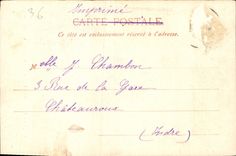 36
Imprimé
CARTE POSTALE
Ce côté est exclusivement réservé à l'adresse.
J. Chambon
3 Rue de la Gare
Châteauroux
(Indre)